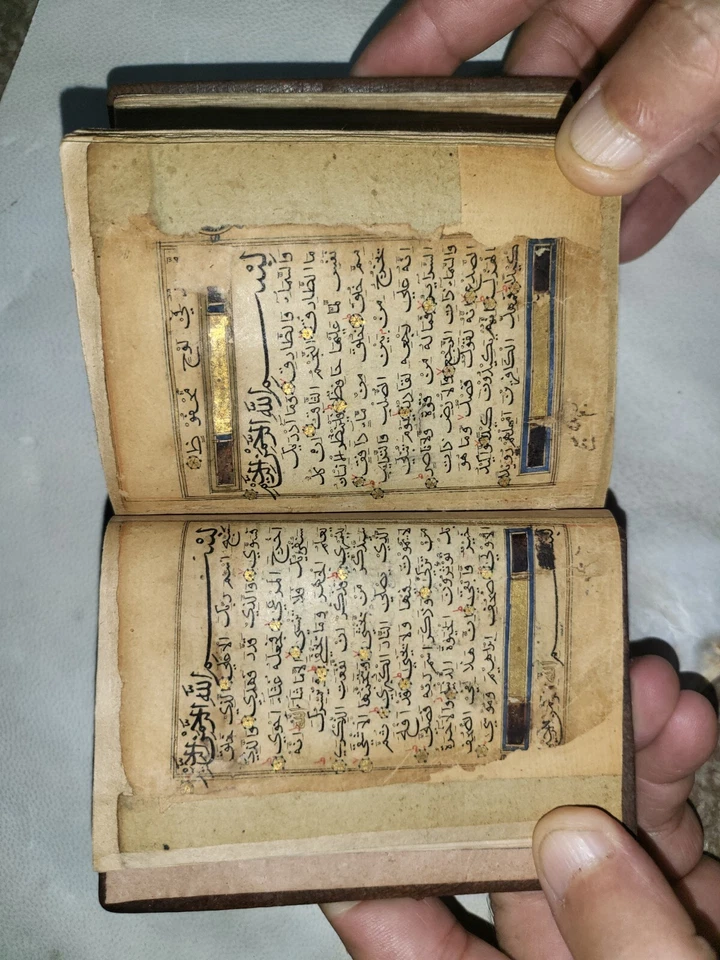 في لوح محفوظ
بسم الله الرحمن الرحيم
والسماء والطارق وما ادريك
ما الطارق النجم الثاقب ان كل
نفس لما عليها حافظ فلينظر الانسان
مم خلق خلق من ماء دافق
يخرج من بين الصلب والترائب
انه على رجعه لقادر يوم تبلى
السرائر فما له من قوة ولا ناصر
والسماء ذات الرجع والارض ذات
الصدع انه لقول فصل وما هو
بالهزل انهم يكيدون كيدا واكيد
كيدا فمهل الكافرين امهلهم رويدا
بسم الله الرحمن الرحيم
سبح اسم ربك الاعلى الذي خلق
فسوى والذي قدر فهدى والذي
اخرج المرعى فجعله غثاء احوى
سنقرئك فلا تنسى الا ما شاء الله انه
يعلم الجهر وما يخفى ونيسرك
لليسرى فذكر ان نفعت الذكرى
سيذكر من يخشى ويتجنبها الاشقى
الذي يصلى النار الكبرى ثم
لا يموت فيها ولا يحيى قد افلح
من تزكى وذكر اسم ربه فصلى
بل تؤثرون الحيوة الدنيا والاخرة
خير وابقى ان هذا لفي الصحف
الاولى صحف ابراهيم وموسى
بسم الله